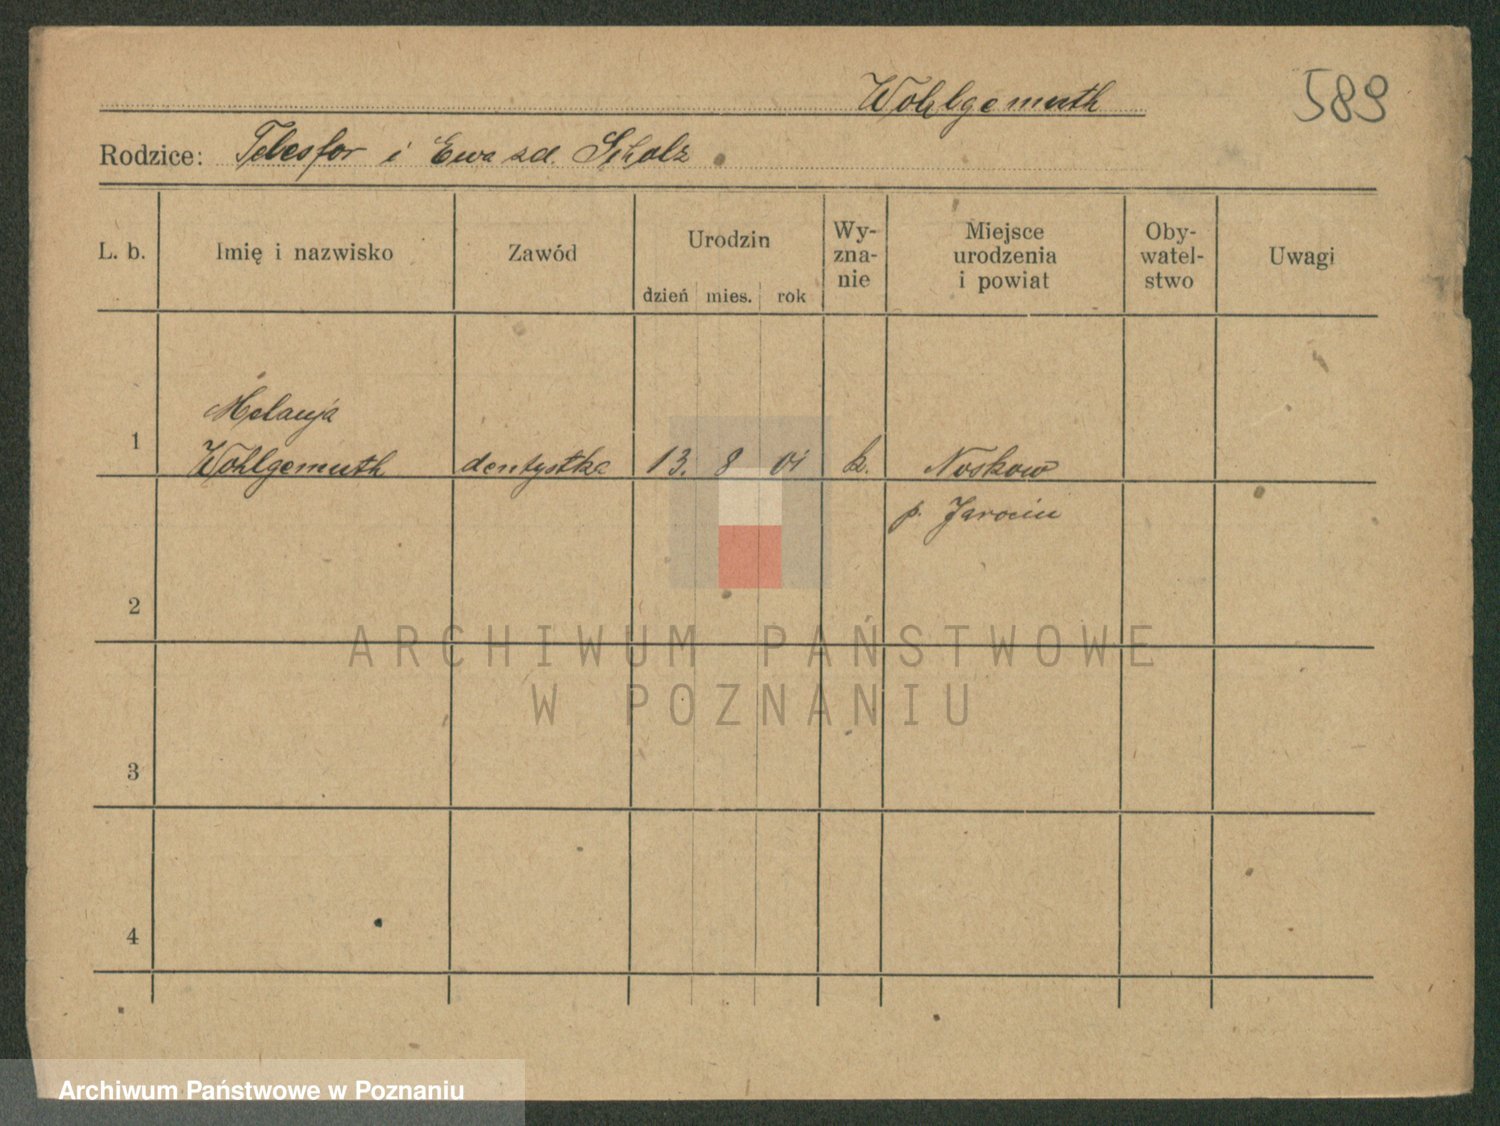 Wohlgemuth
589
Rodzice: Telesfor i Ewa zd. Scholz
L. b. Imię i nazwisko Zawód Urodzin dzień mies. rok Wy-
zna-
nie Miejsce
urodzenia
i powiat Oby-
watel-
stwo Uwagi
Melanja
1 Wohlgemuth dentystka 13. 8 01 k. Noskow
p. Jarocin
2
ARCHIWUM PAŃSTWOWE
W POZNANIU
3
4
Archiwum Państwowe w Poznaniu